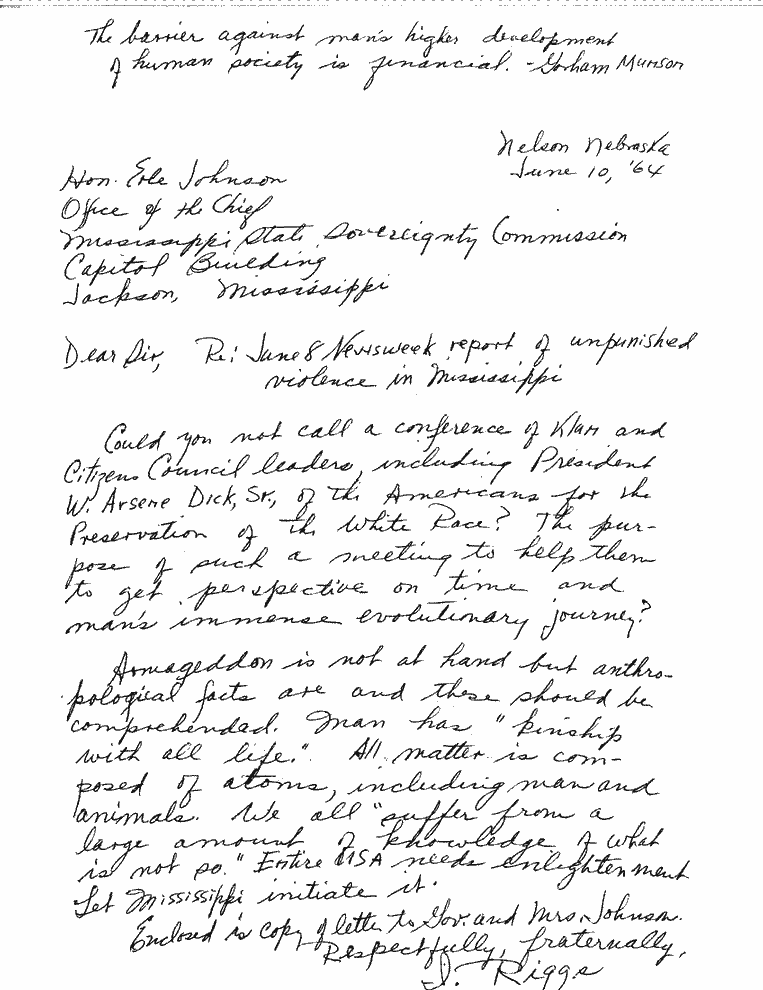 The barrier against man's higher development
of human society is financial. - Gorham Munson
Nelson Nebraska
June 10, '64
Hon. Erle Johnson
Office of the Chief
Mississippi State Sovereignty Commission
Capitol Building
Jackson, Mississippi
Dear Sir, Re: June 8 Newsweek report of unpunished
violence in Mississippi
Could you not call a conference of Klan and
Citizens Council leaders, including President
W. Arsene Dick, Sr., of the Americans for the
Preservation of the White Race? The pur-
pose of such a meeting to help them
to get perspective on time and
man's immense evolutionary journey?
Armageddon is not at hand but anthro-
pological facts are and these should be
comprehended. Man has "kinship
with all life." All matter is com-
posed of atoms, including man and
animals. We all "suffer from a
large amount of knowledge of what
is not so." Entire USA needs enlightenment
Let Mississippi initiate it.
Enclosed is copy of letter to Gov. and Mrs. Johnson.
Respectfully, fraternally,
I. Riggs